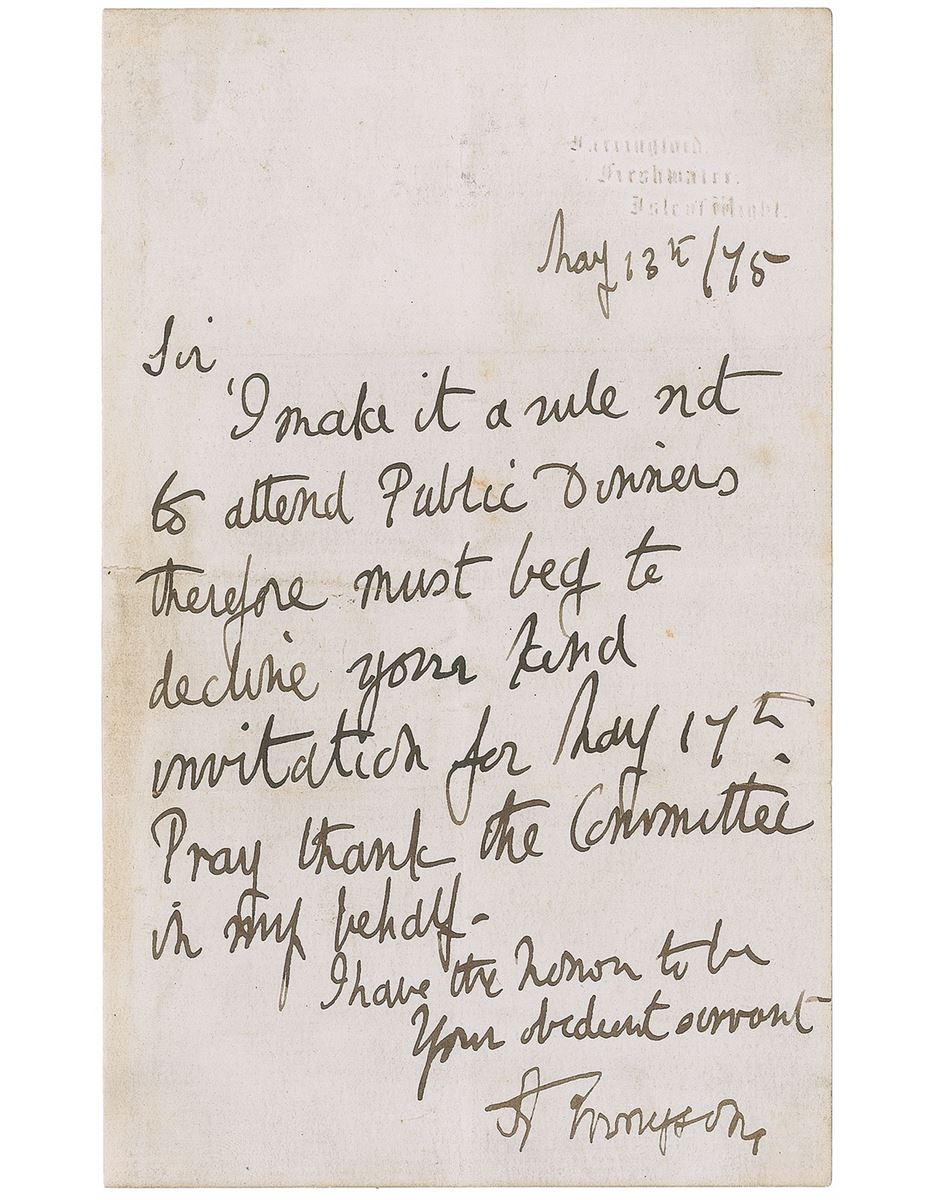 Farringford.
Freshwater.
Isle of Wight.
May 13th/75
Sir
I make it a rule not
to attend Public Dinners
therefore must beg to
decline your kind
invitation for May 17th.
Pray thank the Committee
in my behalf-
I have the honour to be
Your obedient servant
A Tennyson